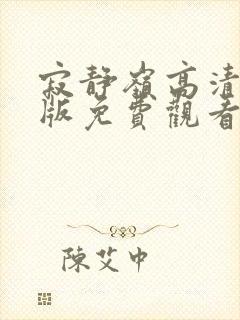 寂靜嶺高清
版免費觀看
陳艾中